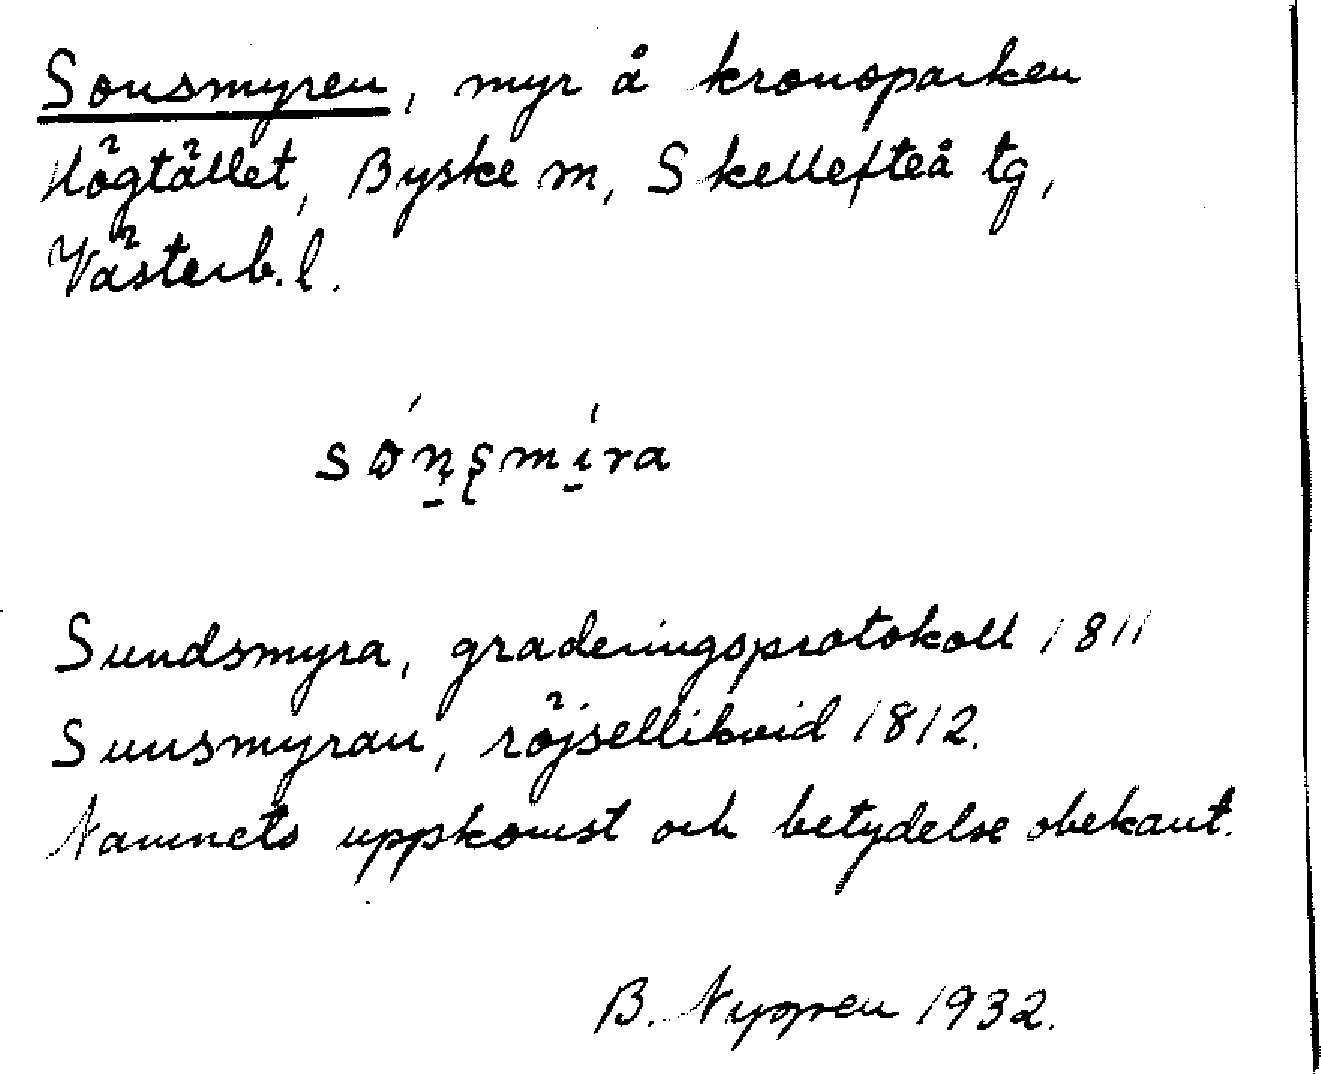 Sonsmyren, myr å kronoparken
Högtället, Byske sn, Skellefteå tg,
Västerb. l.
Sundsmyra, graderingsprotokoll 1811
Sunsmyran, röjsellikvid 1812.
Namnets uppkomst och betydelse obekant.
B. Nygren 1932.